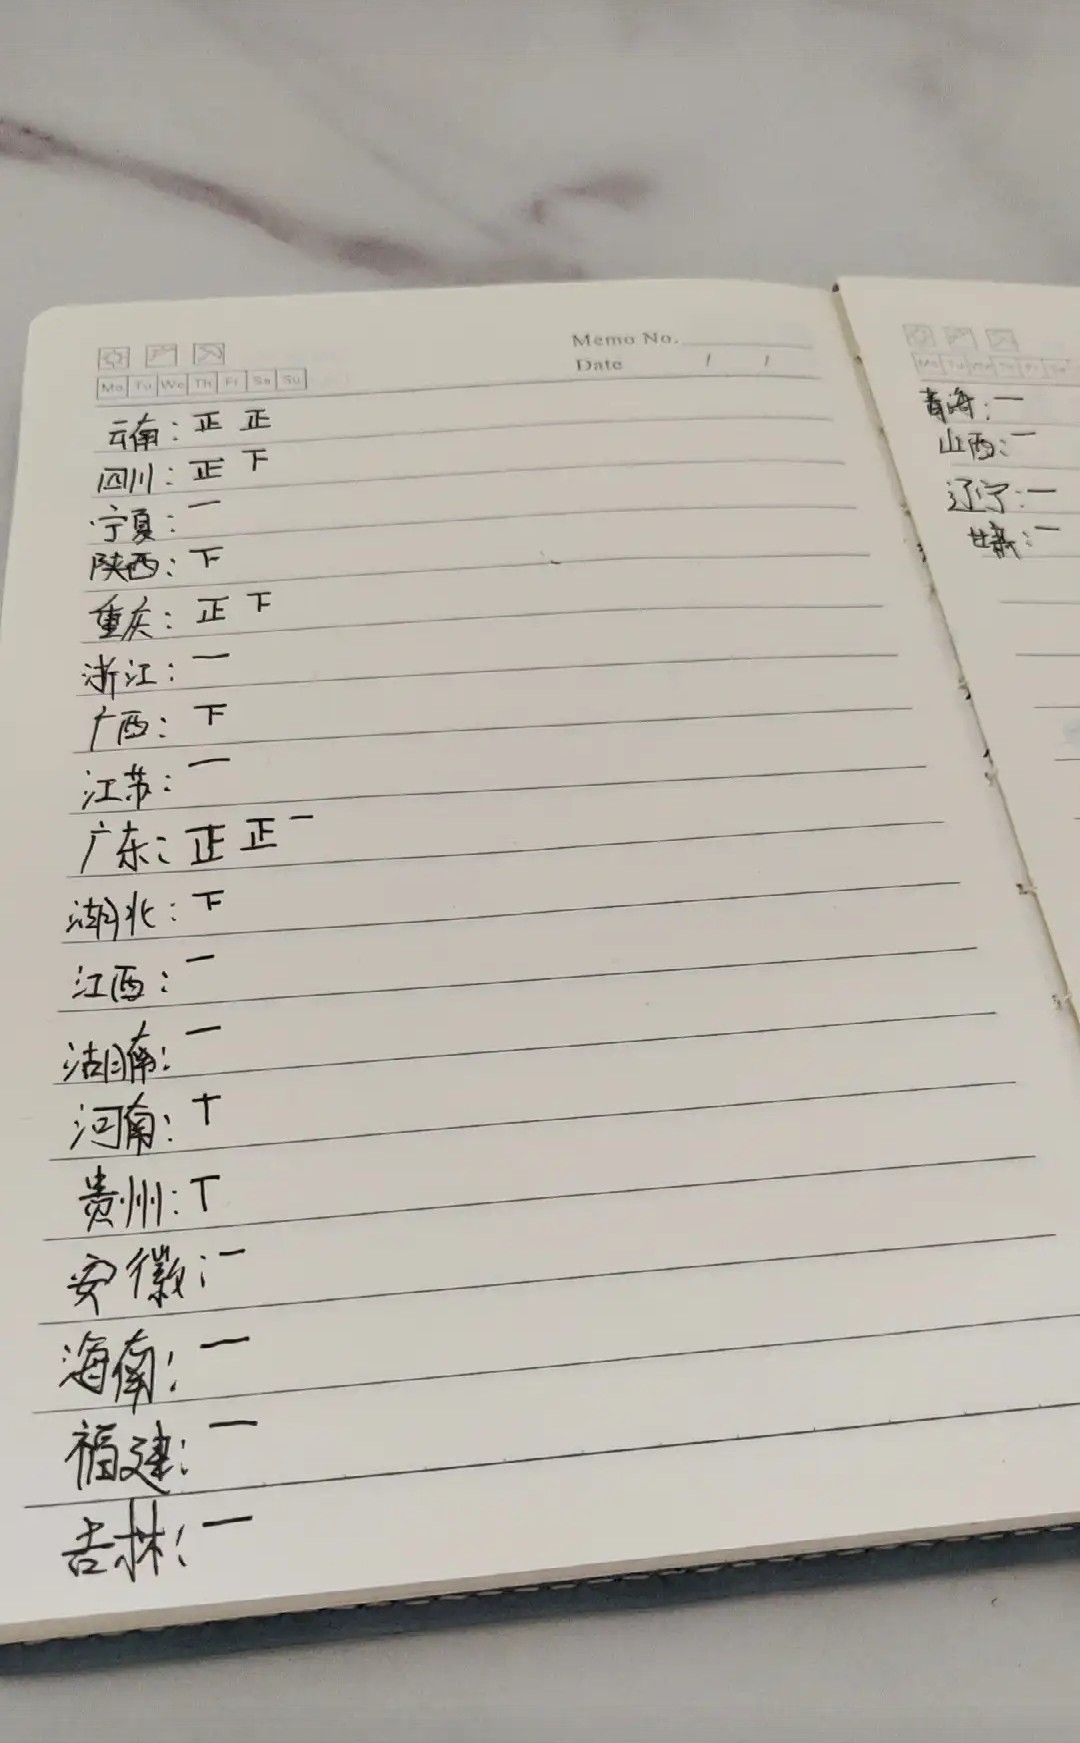 Memo No.
Date / /
Mo Tu We Th Fr Sa Su
云南：正 正
四川：正 下
宁夏：一
陕西：下
重庆：正 下
浙江：一
广西：下
江苏：一
广东：正 正 一
湖北：下
江西：一
湖南：一
河南：丅
贵州：丅
安徽：一
海南：一
福建：一
吉林：一
Mo Tu We Th Fr Sa
青海：一
山西：一
辽宁：一